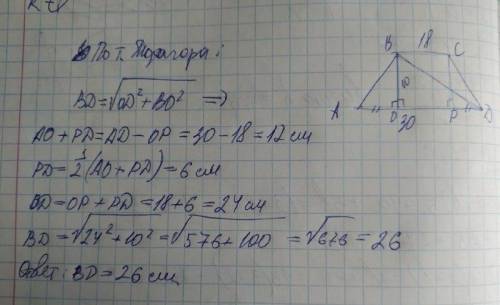 По т. Пифагора:
BD=√OD²+BO² ⇒
AO+PD=AD-OP=30-18=12 см
PD=½(AO+PD)=6 см
BD=OP+PD=18+6=24 см
BD=√24²+10²=√576+100=√676=26
Ответ: BD=26 см
B 18 C
10
A O 30 P D